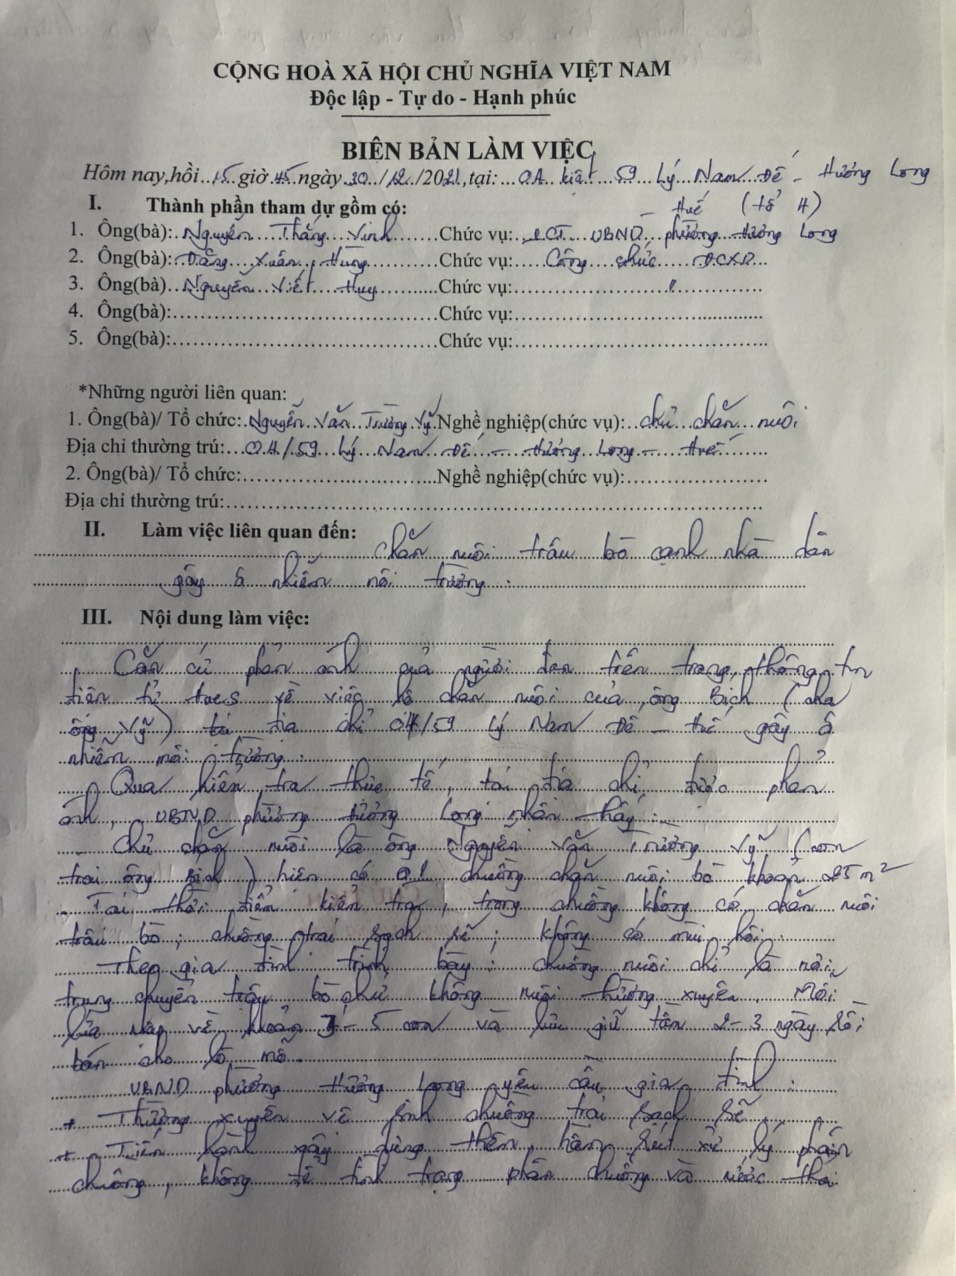 CỘNG HOÀ XÃ HỘI CHỦ NGHĨA VIỆT NAM
Độc lập - Tự do - Hạnh phúc
BIÊN BẢN LÀM VIỆC
Hôm nay, hồi 15 giờ 45 ngày 30/12/2021, tại: kiệt 59 Lý Nam Đế - Hương Long
- Huế (tổ 4)
I. Thành phần tham dự gồm có:
1. Ông(bà): Nguyễn Thắng Vinh Chức vụ: PCT UBND phường Hương Long
2. Ông(bà): Đặng Xuân Hùng Chức vụ: Công chức ĐCXD
3. Ông(bà): Nguyễn Viết Huy Chức vụ: "
4. Ông(bà): Chức vụ:
5. Ông(bà): Chức vụ:
*Những người liên quan:
1. Ông(bà)/ Tổ chức: Nguyễn Văn Trường Vỹ Nghề nghiệp(chức vụ): chủ chăn nuôi
Địa chỉ thường trú: 04/59 Lý Nam Đế - Hương Long - Huế
2. Ông(bà)/ Tổ chức: Nghề nghiệp(chức vụ):
Địa chỉ thường trú:
II. Làm việc liên quan đến: chăn nuôi trâu bò cạnh nhà dân
gây ô nhiễm môi trường.
III. Nội dung làm việc:
Căn cứ phản ánh của người dân trên trang thông tin
điện tử về việc hộ chăn nuôi của ông Bích (cha
ông Vỹ) tại địa chỉ 04/59 Lý Nam Đế - Huế gây ô
nhiễm môi trường.
Qua kiểm tra thực tế, tại địa chỉ được phản
ánh, UBND phường Hương Long nhận thấy:
Chủ chăn nuôi là ông Nguyễn Văn Trường Vỹ (con
trai ông Bích) hiện có 01 chuồng chăn nuôi bò khoảng 25 m²
Tại thời điểm kiểm tra, trong chuồng không có chăn nuôi
trâu bò, chuồng trại sạch sẽ, không có mùi hôi.
Theo gia đình trình bày: chuồng nuôi chỉ là nơi
trung chuyển trâu bò chứ không nuôi thường xuyên. Mỗi
lứa nhập về khoảng 3-5 con và lưu giữ tầm 2-3 ngày rồi
bán cho lò mổ.
UBND phường Hương Long yêu cầu gia đình:
+ Thường xuyên vệ sinh chuồng trại sạch sẽ
+ Tiến hành xây dựng thêm hầm rút xử lý phân
chuồng, không để tình trạng phân chuồng và nước thải